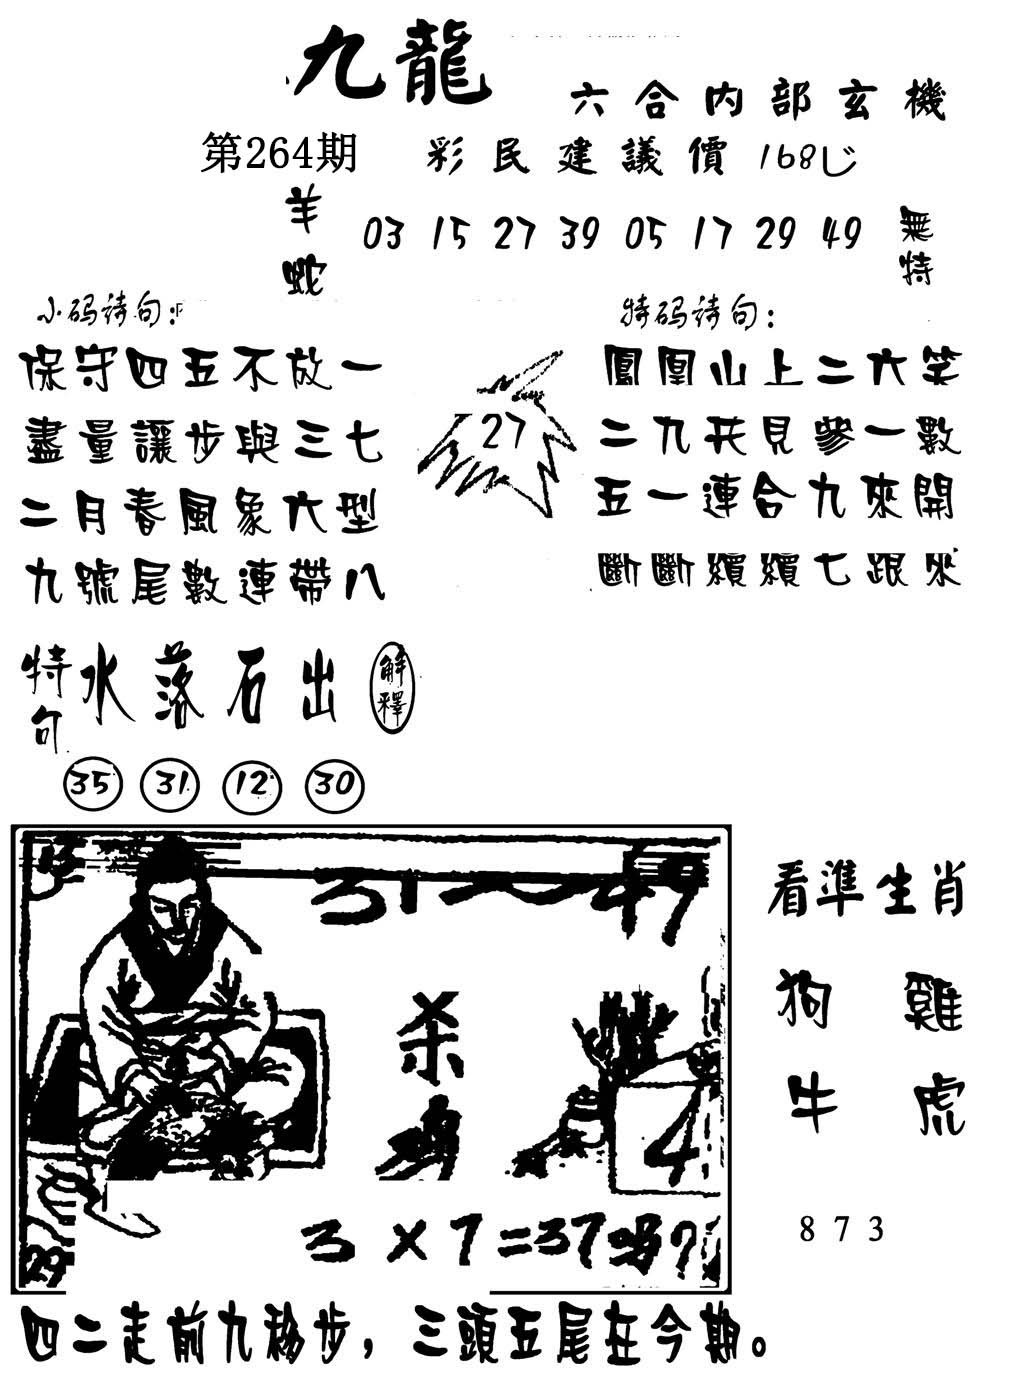 九龍
六合内部玄機
第264期 彩民建議價 168
羊蛇 03 15 27 39 05 17 29 49 無特
小码诗句:
保守四五不放一
盡量讓步與三七
二月春風象六型
九號尾數連帶八
27
特码诗句:
鳳凰山上二六笑
二九共見參一數
五一連合九來開
斷斷續續七跟來
特句 水落石出 解釋
35 31 12 30
31 47
杀
4
3×7=37吗?
29
看準生肖
狗 雞
牛 虎
873
四二走前九移步,三頭五尾在今期。